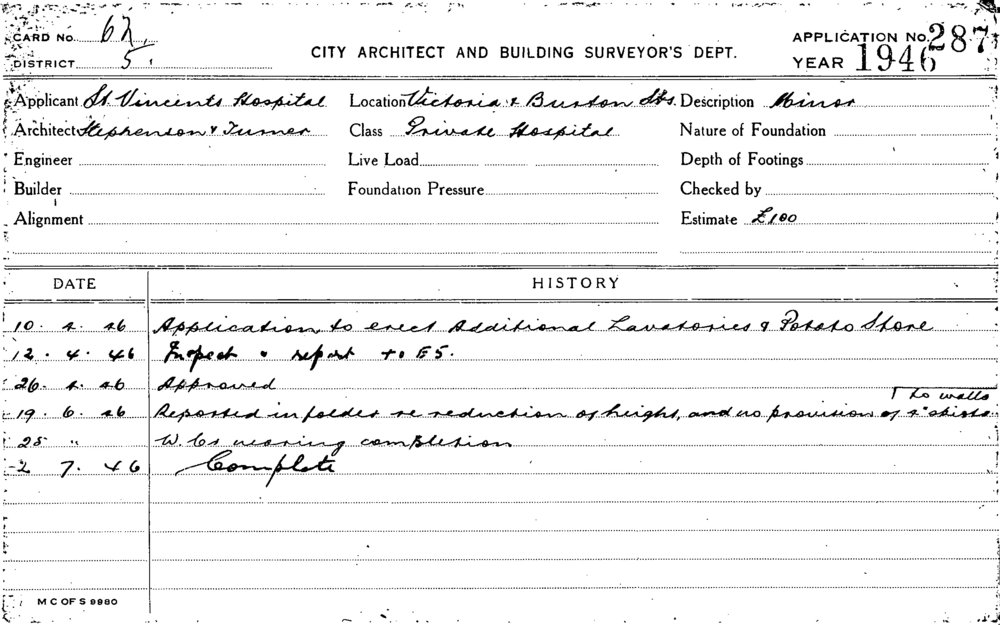 CARD No. 62.
DISTRICT 5.
CITY ARCHITECT AND BUILDING SURVEYOR'S DEPT.
APPLICATION No. 287
YEAR 1946
Applicant St Vincents Hospital Location Victoria & Burton Sts. Description Minor
Architect Stephenson & Turner Class Private Hospital Nature of Foundation
Engineer Live Load Depth of Footings
Builder Foundation Pressure Checked by
Alignment Estimate £100
DATE HISTORY
10. 4. 46 Application to erect Additional Lavatories & Potato Store
12. 4. 46 Inspect & report to E5.
26. 4. 46 Approved
to walls
19. 6. 46 Reported in folder re reduction of height, and no provision of 4" skirts
25 " W.Cs nearing completion
2 7. 46 Complete
M C OF S 9980